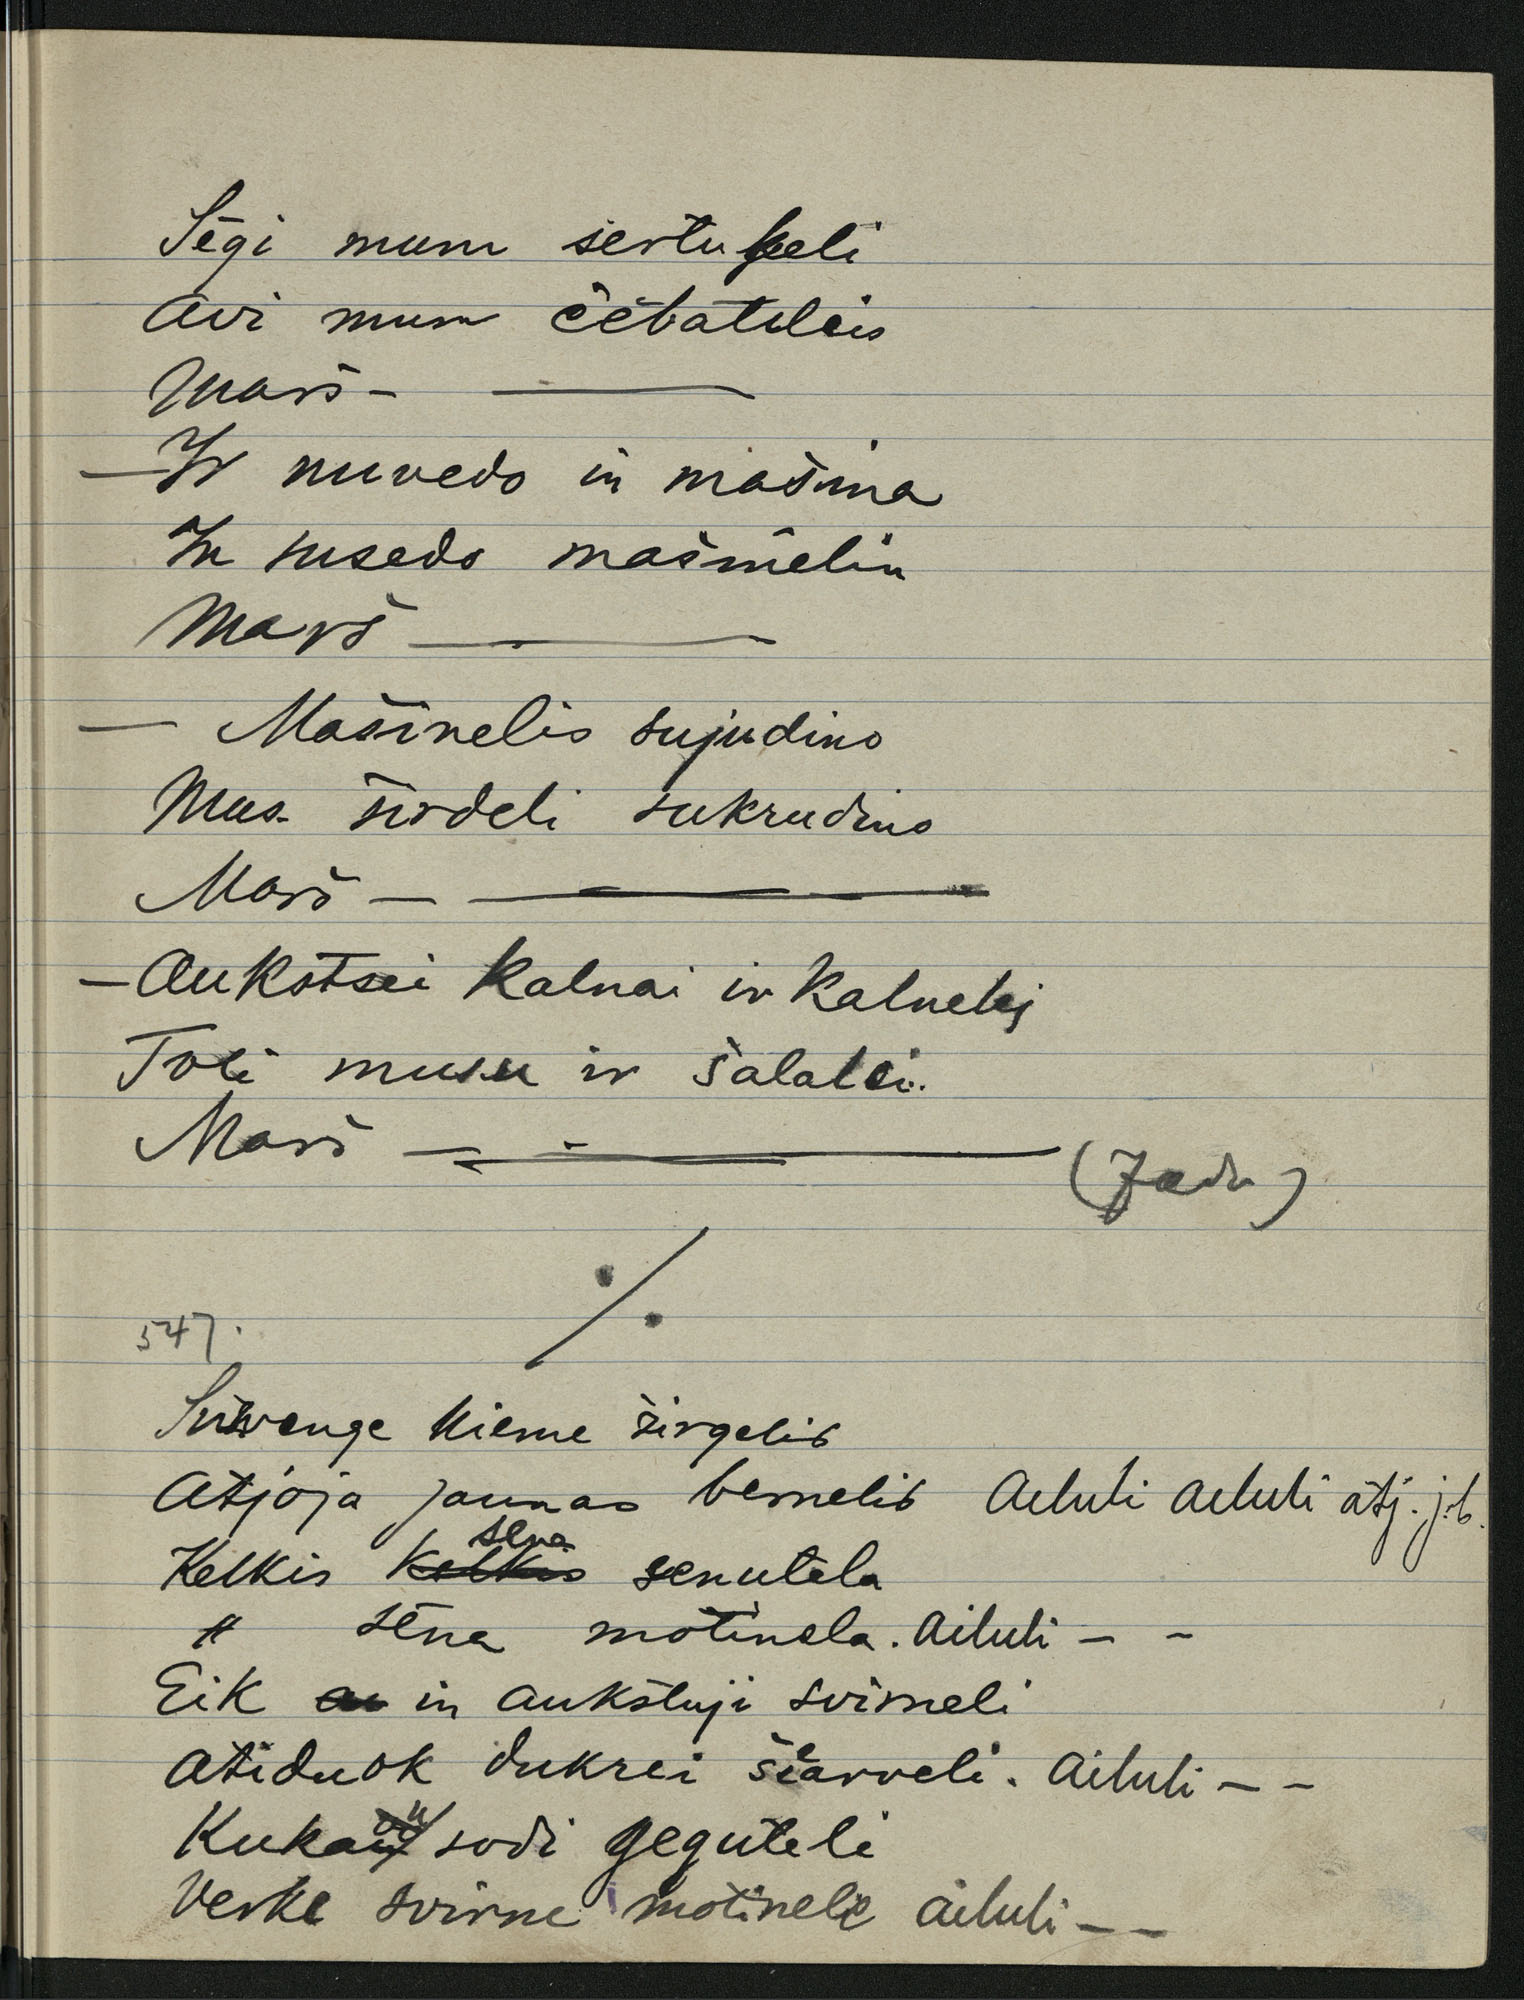 Sėgi mum sertukeli
Avi mum čėbatuleis
Marš - ———
— Ir nuvedo in mašina
In susedo mašinelin
Marš ———
— Mašinelis sujudino
Mus širdeli sukrudino
Marš — ———
— Aukštsei kalnai ir kalnelej
Toli musu ir šalalei.
Marš — ———
(Jadv)
%
547.
Suzvenge kieme žirgelis
Atjoja jaunas bernelis Ailuli ailuli atj. j. b.
Kelkis sena senutela
" sėna motinela. Ailuli – –
Eik in aukštuji svirneli
Atiduok dukrei šiarveli. Ailuli – –
Kukau sodi geguteli
Verke svirne motineli ailuli – –